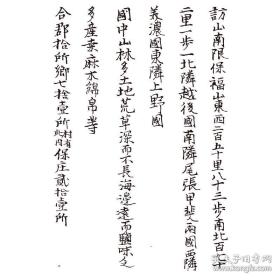 訪山南限保福山東西二百五十里八十三步南北百六十
二里一步一北隣越後國南隣尾張甲斐両國西隣
美濃國東隣上野國
國中山林多土地荒草深而不長海邊遠而鹽味乏
多産桑麻木綿帛等
合郡拾所鄉七拾壹所 保庄貳拾壹所